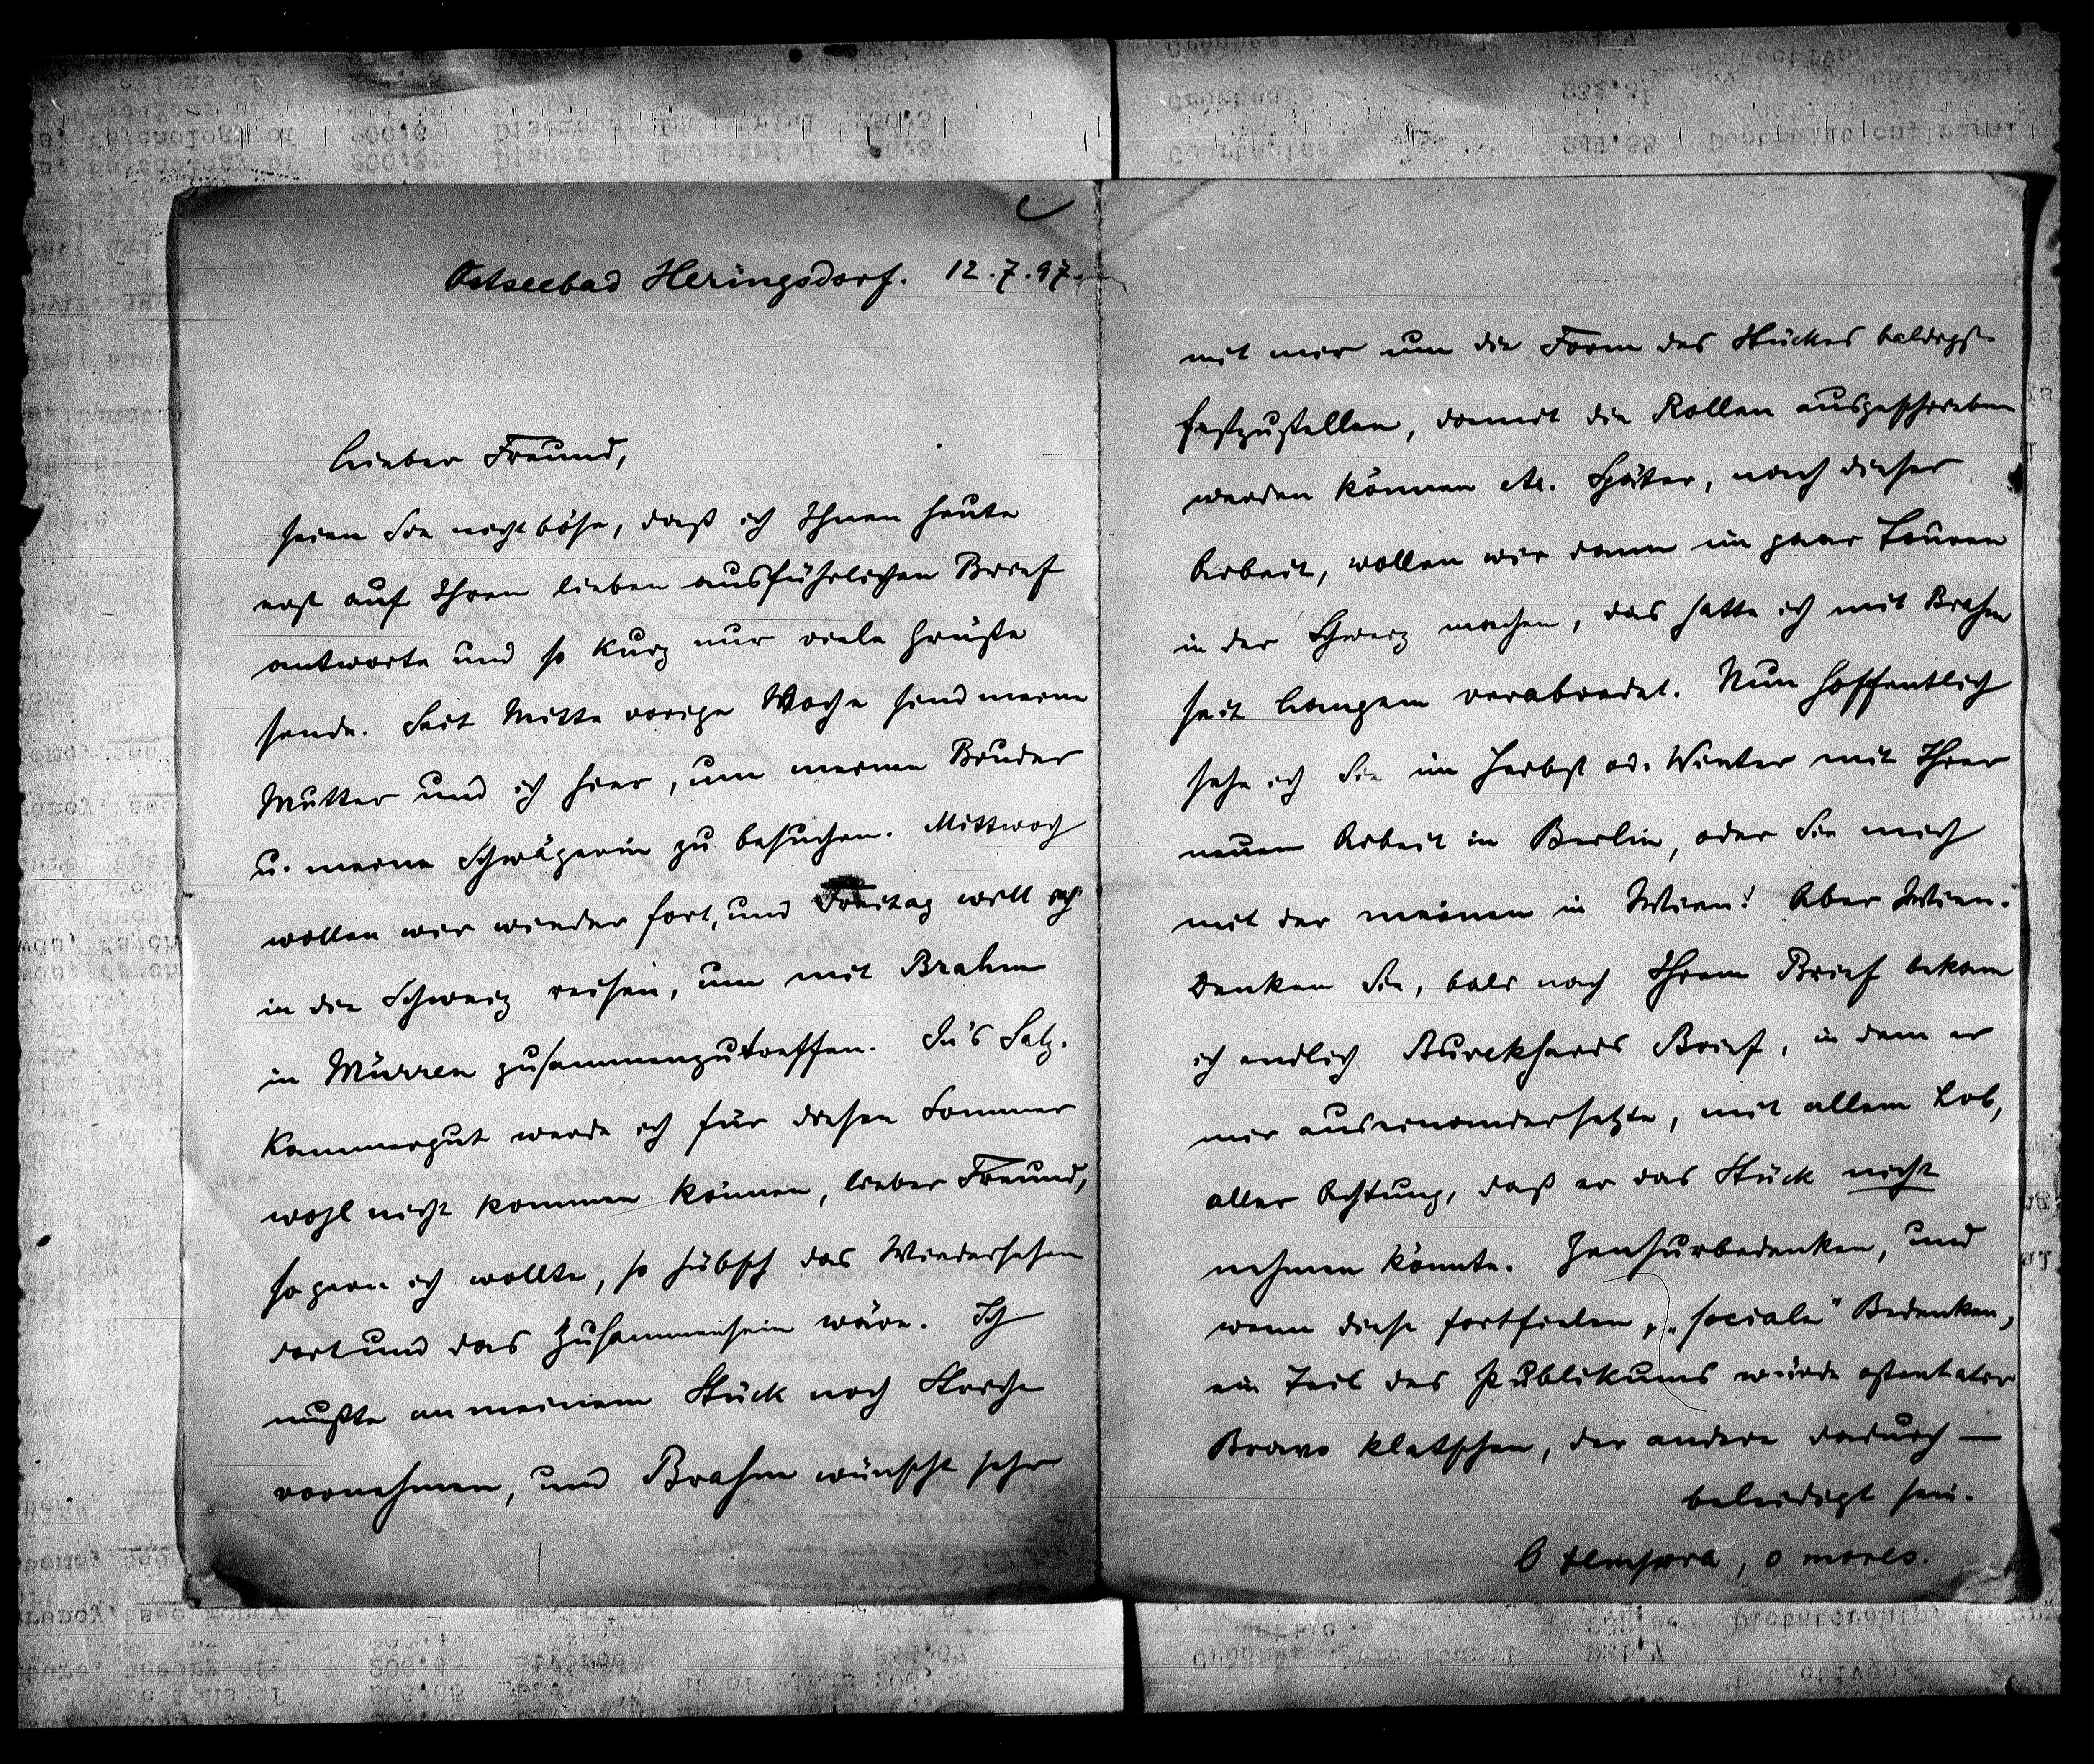 Ostseebad Heringsdorf. 12.7.97.
Lieber Freund,
seien Sie nicht böse, daß ich Ihnen heute
erst auf Ihren lieben ausführlichen Brief
antworte und so kurz nur viele Grüße
sende. Seit Mitte voriger Woche sind meine
Mutter und ich hier, um meinen Bruder
u. meine Schwägerin zu besuchen. Mittwoch
wollen wir wieder fort, und Freitag will ich
in die Schweiz reisen, um mit Brahm
in Mürren zusammenzutreffen. In's Salz-
kammergut werde ich für diesen Sommer
wohl nicht kommen können, lieber Freund,
so gern ich wollte, so hübsch das Wiedersehen
dort und das Zusammensein wäre. Ich
mußte an meinem Stück noch Striche
vornehmen, und Brahm wünscht sehr
mit mir um die Form des Stückes baldigst
festzustellen, damit die Rollen ausgeschrieben
werden können etc. Später, nach dieser
Arbeit, wollen wir dann ein paar Touren
in der Schweiz machen, das hatte ich mit Brahm
seit Langem verabredet. Nun hoffentlich
sehe ich Sie im Herbst od. Winter mit Ihrer
neuen Arbeit in Berlin, oder Sie mich
mit der meinen in Wien! Aber Wien.
Denken Sie, bald nach Ihrem Brief bekam
ich endlich Burckhards Brief, in dem er
mir auseinandersetzte, mit allem Lob,
aller Achtung, daß er das Stück nicht
nehmen könnte. Zensurbedenken, und
wenn diese fortfielen, „sociale" Bedenken,
ein Teil des Publikums würde ostentativ
Bravo klatschen, der andere dadurch —
beleidigt sein.
O tempora, o mores.